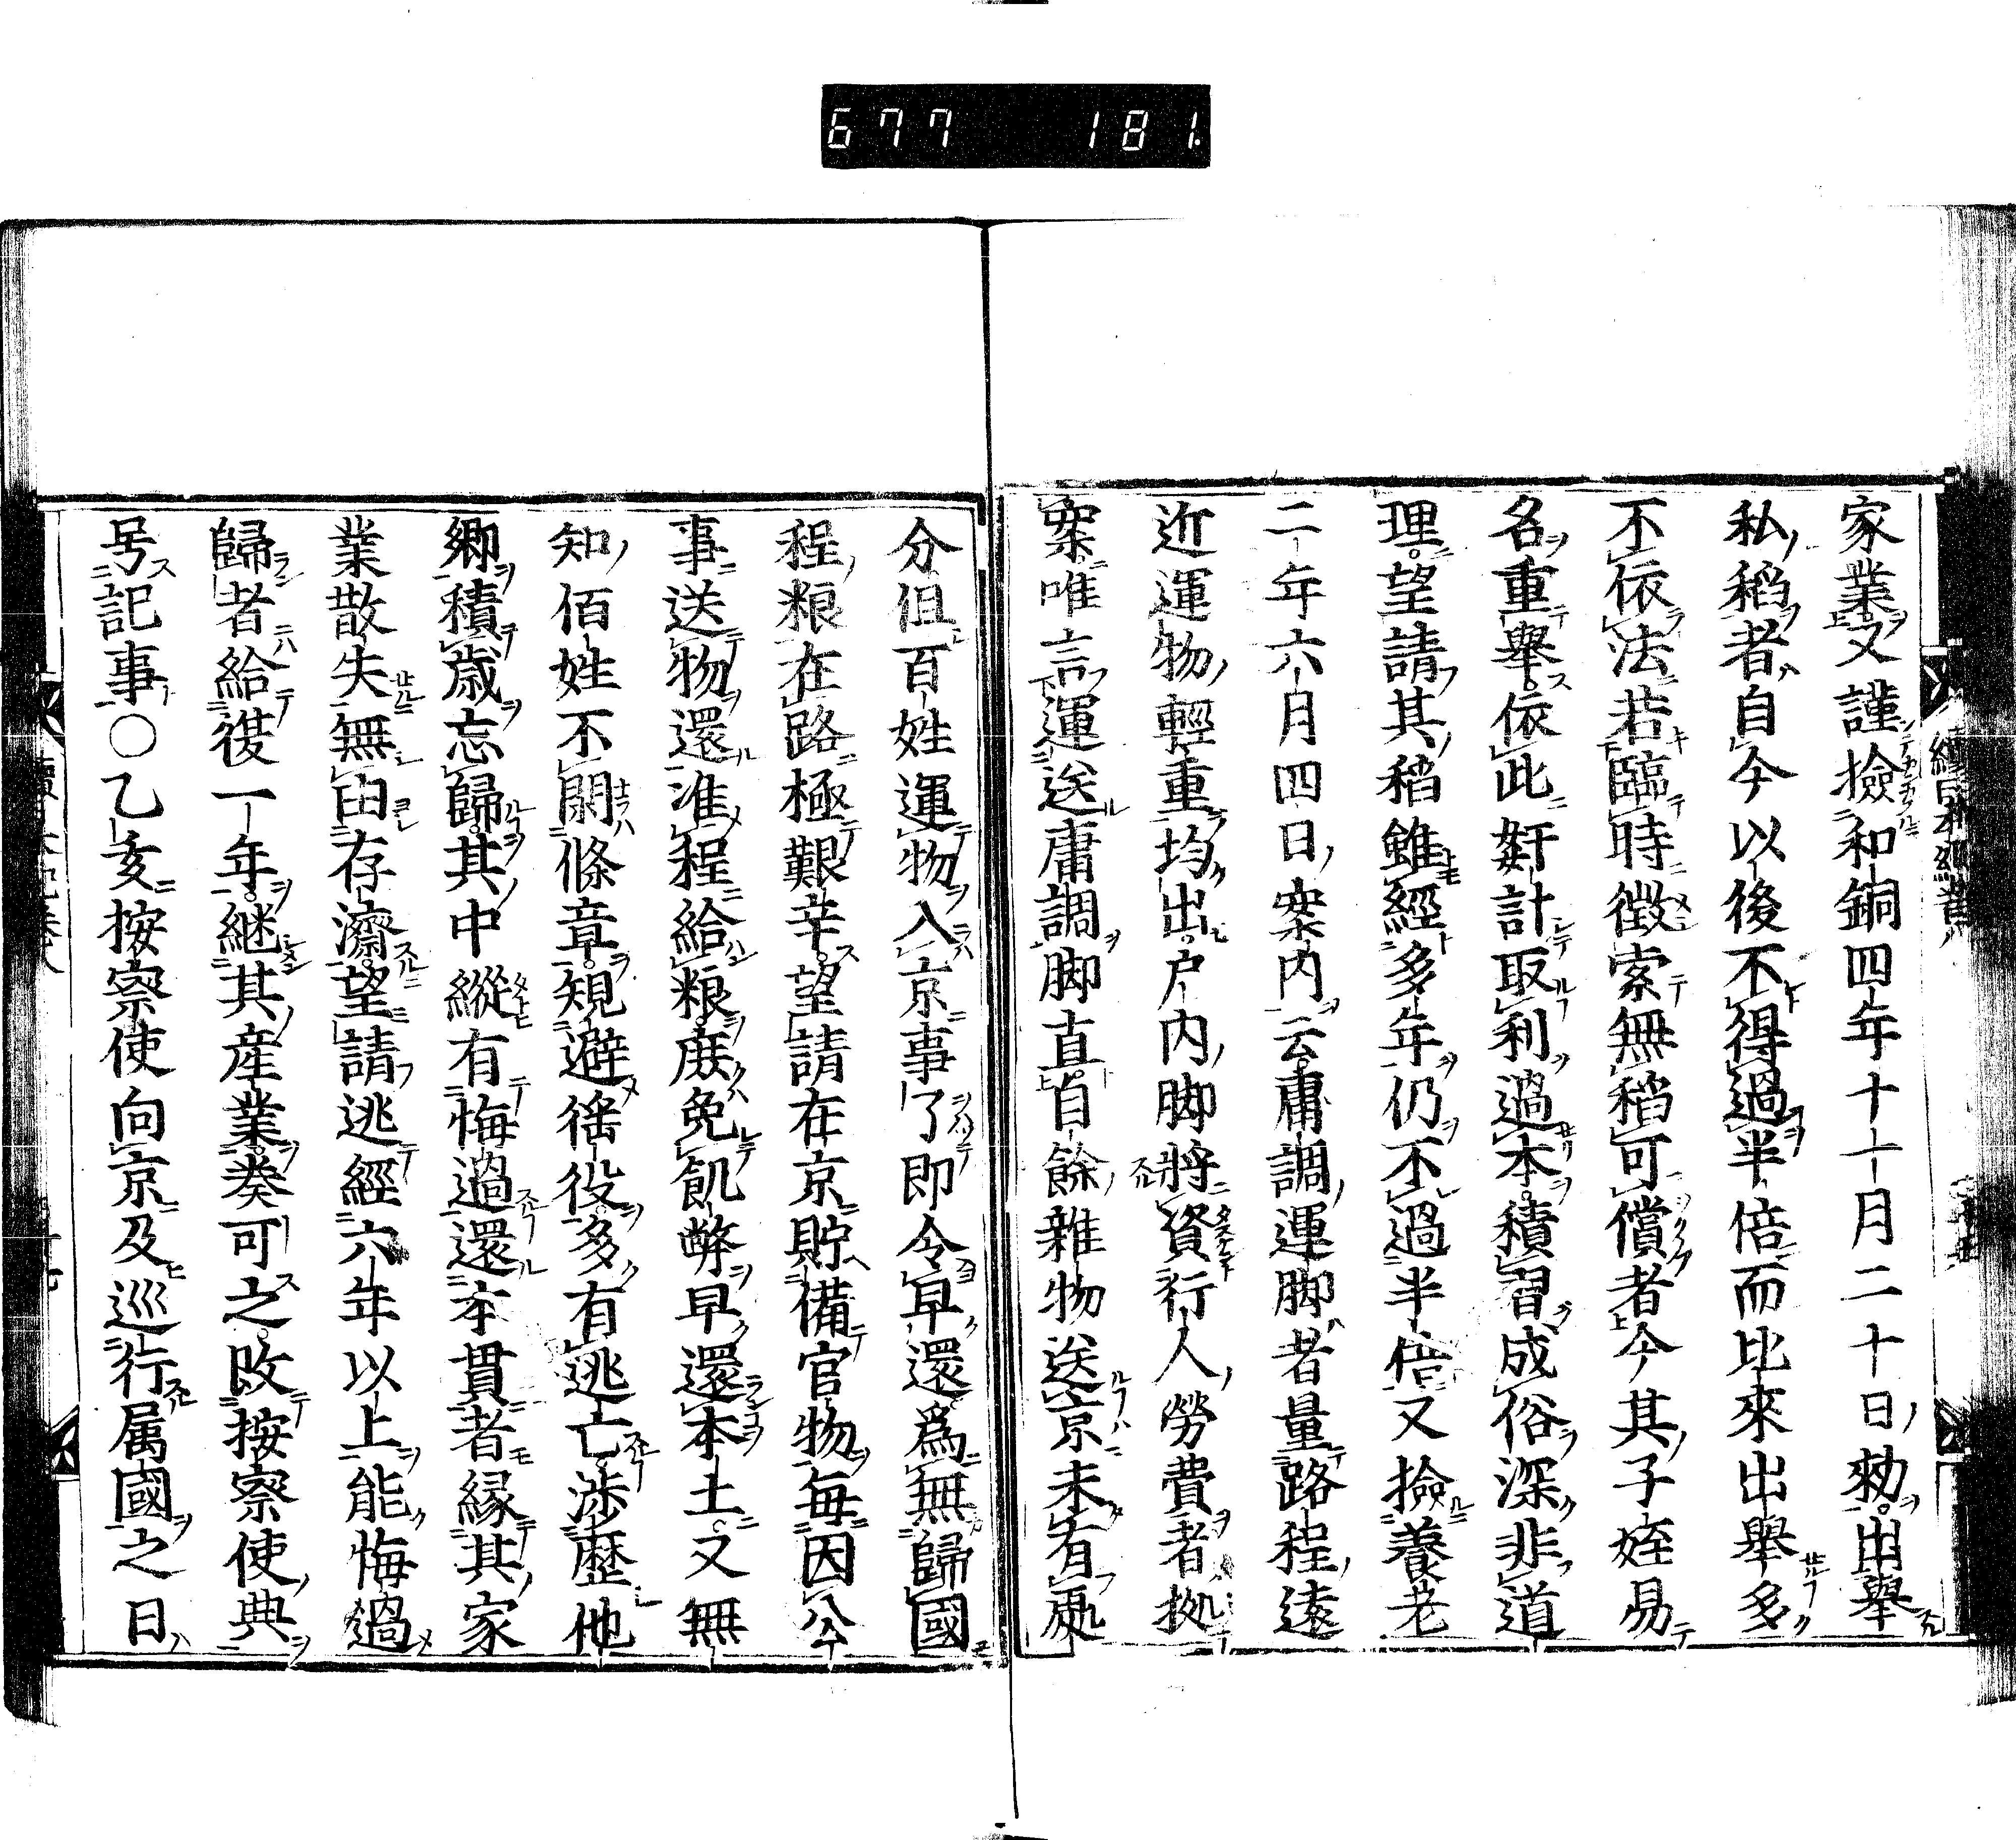 677 181
家業又謹撿和銅四年十一月二十日勑出舉
私稻者自今以後不得過半倍而比來出舉多
不依法若臨時徵索無稻可償者令其子姪易
名重舉依此姧計取利過本積習成俗深非道
理望請其稻雖經多年仍不過半倍又撿養老
二年六月四日案內云庸調運脚者量路程遠
近運物輕重均出戶內脚將資行人勞費者拠
案唯言運送庸調脚直自餘雜物送京未有處
分但百姓運物入京事了即令早還爲無歸國
程粮在路極艱辛望請在京貯備官物每因公
事送物還准程給粮庻免飢弊早還本土又無
知佰姓不閑條章規避徭役多有逃亡涉歷他
鄉積歲忘歸其中縱有悔過還本貫者緣其家
業散失無由存濟望請逃經六年以上能悔過
歸者給復一年継其產業奏可之改按察使典
号記事○乙亥按察使向京及巡行属國之日